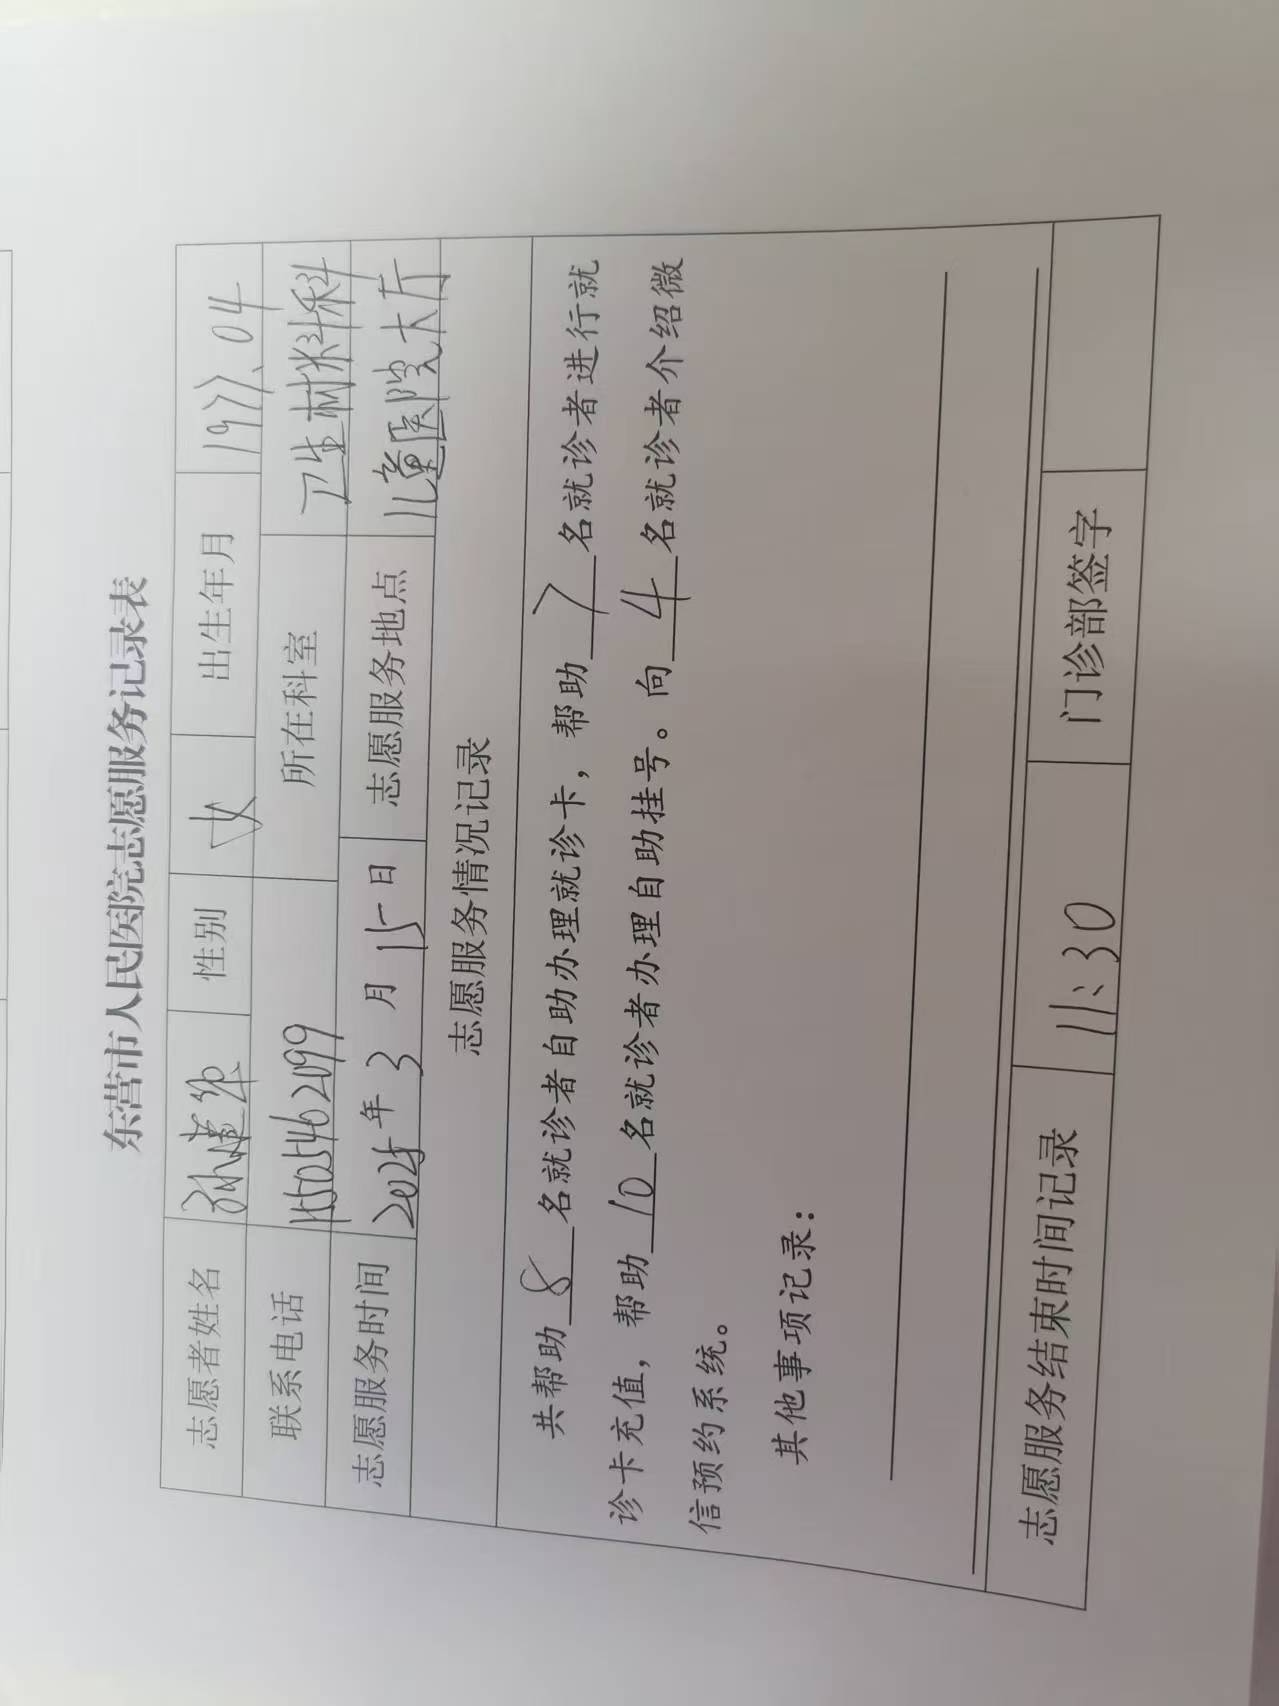 东营市人民医院志愿服务记录表
志愿者姓名 孙建华 性别 女 出生年月 1977.04
联系电话 1505462099 所在科室 卫生材料科
志愿服务时间 2025年3月15日 志愿服务地点 儿童医院大厅
志愿服务情况记录
共帮助 8 名就诊者自助办理就诊卡，帮助 7 名就诊者进行就
诊卡充值，帮助 10 名就诊者办理自助挂号。向 4 名就诊者介绍微
信预约系统。
其他事项记录：
志愿服务结束时间记录 11:30 门诊部签字